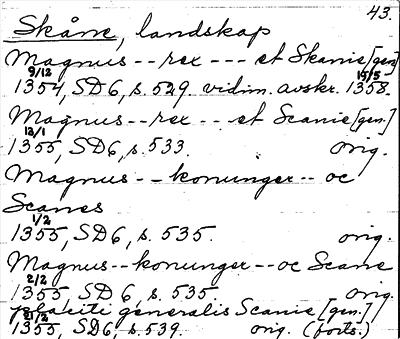 43.
Skåne, landskap
Magnus -- rex --- et Skanie [gen.]
9/12 19/5
1354, SD6, s. 529. vidim. avskr. 1358.
Magnus -- rex -- et Scanie [gen.]
13/1
1355, SD6, s. 533. orig.
Magnus -- konunger -- oc
Scanes
1/2
1355, SD6, s. 535. orig.
Magnus -- konunger -- oc Scane
2/2
1355, SD 6, s. 535. orig.
generalis Scanie [gen.]
1355, SD6, s. 539. orig. (forts.)